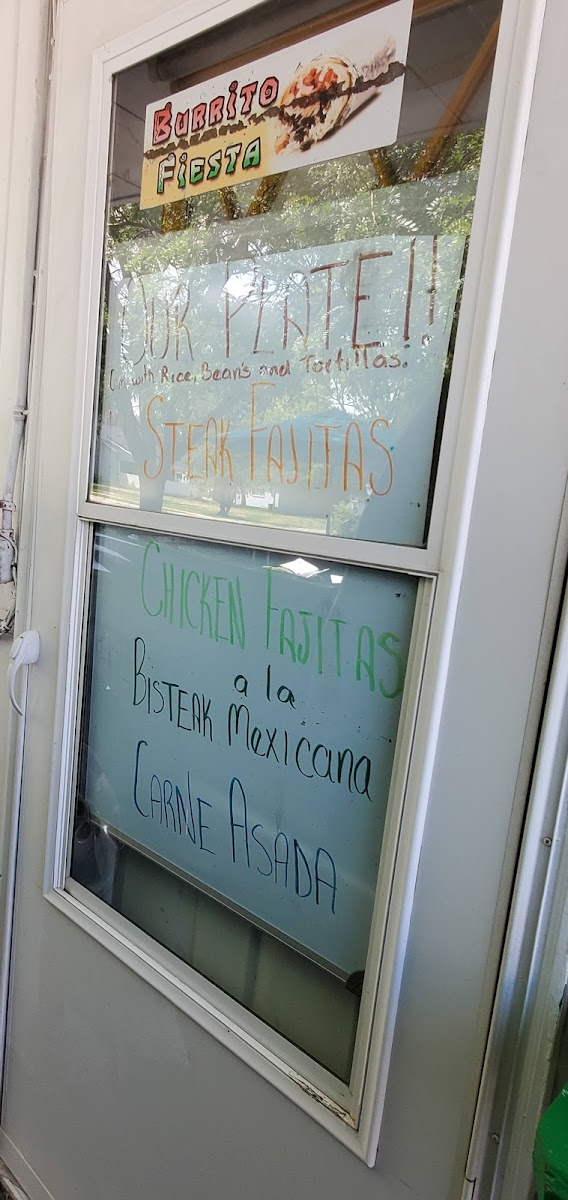 BURRITO
FIESTA
OUR PLATE!!
with Rice, Bean's and Tortillas.
STEAK FAJITAS
CHICKEN FAJITAS
a la
BISTEAK Mexicana
CARNE ASADA